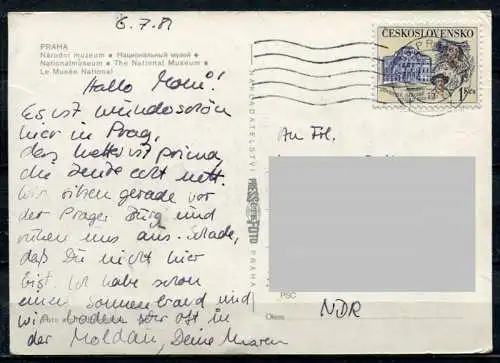 6.7.81
PRAHA
Národní muzeum • Национальный музей •
Nationalmuseum • The National Museum •
Le Musée National
ČESKOSLOVENSKO
1 Kčs
Hallo Moni!
Es ist wunderschön
hier in Prag,
das Wetter ist prima,
die Leute echt nett.
Wir sitzen gerade vor
der Prager Burg und
ruhen uns aus. Schade,
daß Du nicht hier
bist. Ich habe schon
einen Sonnenbrand und
wir baden sehr oft in
der Moldau, Deine
NAKLADATELSTVÍ
PRESSFOTO
PRAHA
An Frl.
PSČ
Okres
NDR